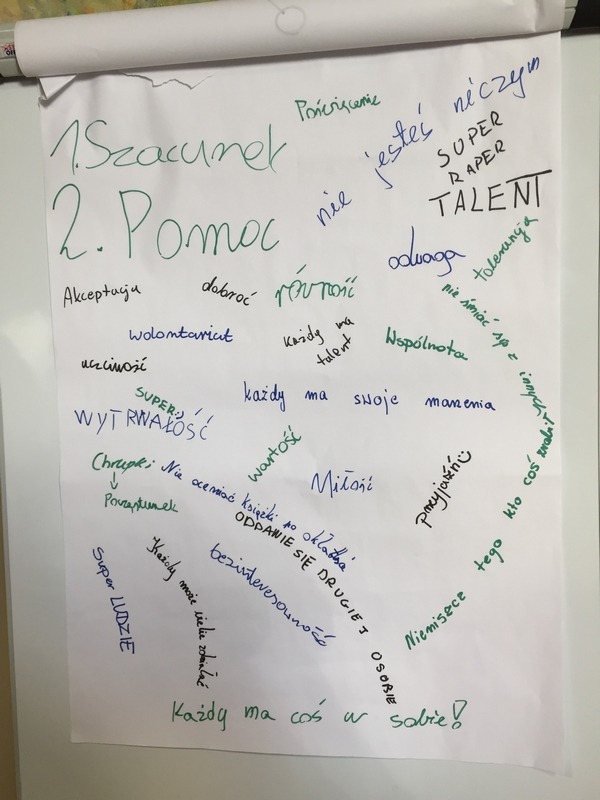 Poświęcenie
1. Szacunek
nie jesteś niczym
SUPER
RAPER
TALENT
2. Pomoc
odwaga
tolerancja
Akceptacja
dobroć
równość
nie śmiać się z
wolontariat
każdy ma
talent
Wspólnota
uczciwość
SUPER
każdy ma swoje marzenia
WYTRWAŁOŚĆ
wartość
Chrupki
↓
Poczęstunek
Nie oceniać książki po okładce
Miłość
przyjaźń
ODDANIE SIĘ DRUGIEJ OSOBIE
Super LUDZIE
Każdy może wiele zdziałać
bezinteresowność
tego kto coś zrobił
każdy ma coś w sobie!